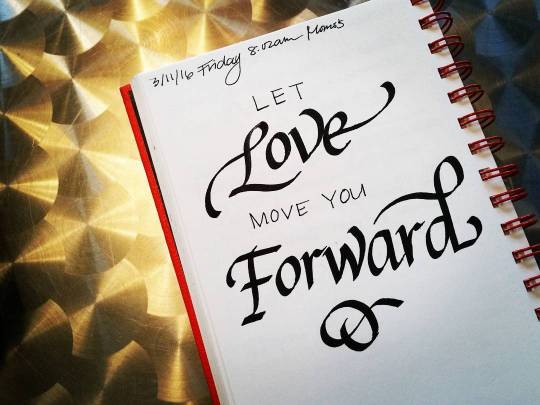 3/11/16 Friday 8:02am Momo's
LET
Love
MOVE YOU
Forward